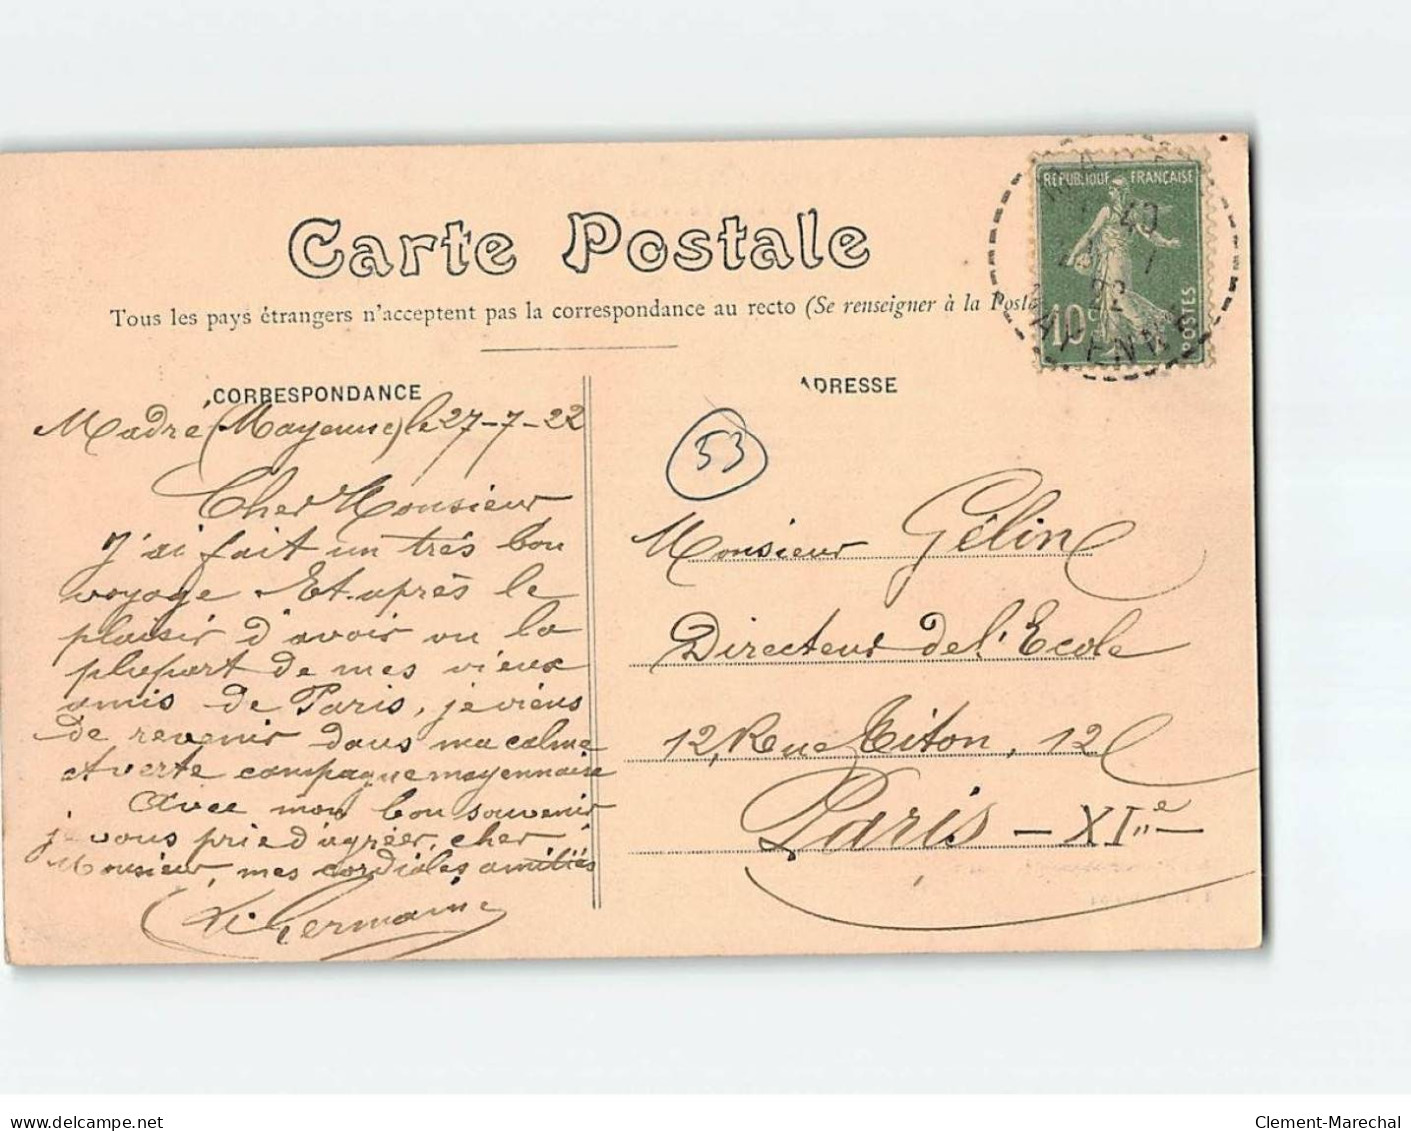 Carte Postale
Tous les pays étrangers n'acceptent pas la correspondance au recto (Se renseigner à la Poste
RÉPUBLIQUE FRANÇAISE
40
22
10c
POSTES
MAYENNE
CORRESPONDANCE
Madré (Mayenne) le 27-7-22
Cher Monsieur
J'ai fait un très bon
voyage Et après le
plaisir d'avoir vu la
plupart de mes vieux
amis de Paris, je viens
de revenir dans ma calme
et verte campagne mayennaise
Avec mon bon souvenir
je vous prie d'agréer, cher
Monsieur, mes cordiales amitiés
Germaine
ADRESSE
53
Monsieur Gélin
Directeur de l'Ecole
12, Rue Titon, 12
Paris - XIe -
delcampe.net
Clement-Marechal